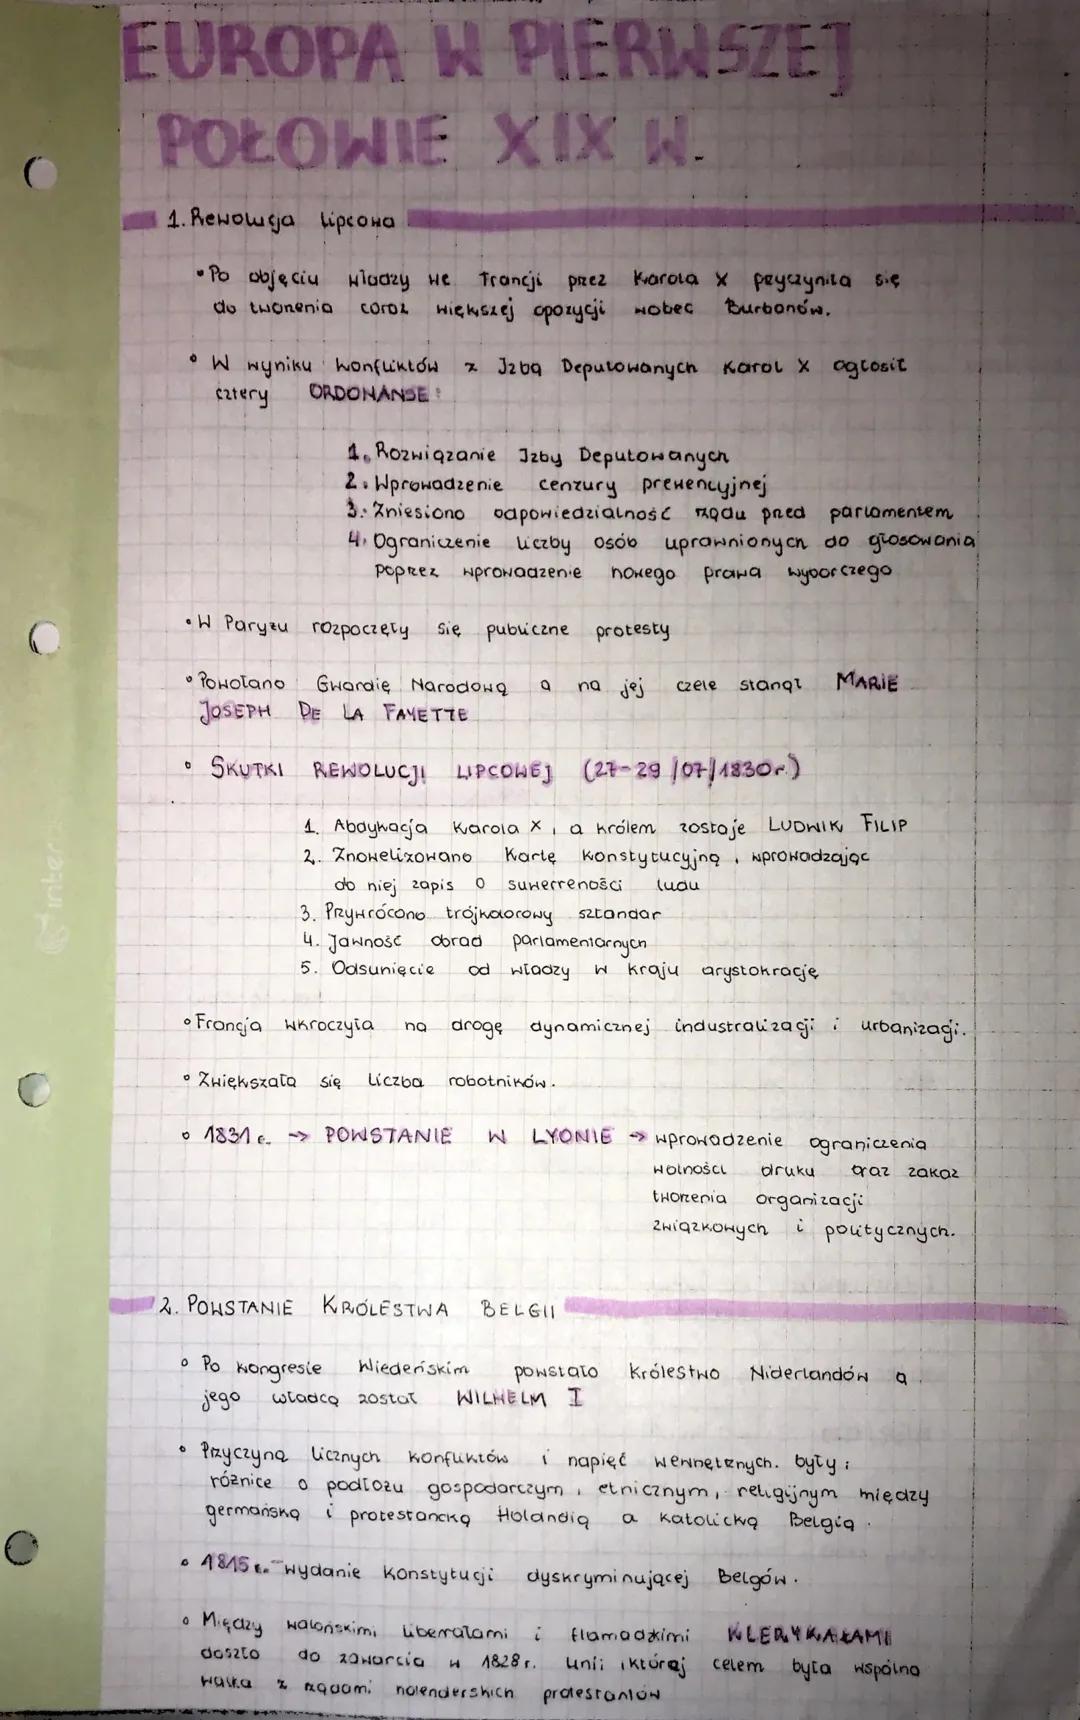 EUROPA W PIERWSZEJ
POŁOWIE XIX W.
1. Rewolucja lipcowa
• Po objęciu władzy we Francji przez Karola X pryczyniła się
do tworzenia coraz większej opozycji wobec Burbonów.
• W wyniku konfliktów z Izbą Deputowanych Karol X ogłosił
cztery ORDONANSE:
1. Rozwiązanie Izby Deputowanych
2. Wprowadzenie cenzury prewencyjnej
3. Zniesiono odpowiedzialność rządu przed parlamentem
4. Ograniczenie liczby osób uprawnionych do głosowania
poprzez wprowadzenie nowego prawa wyborczego
• W Paryżu rozpoczęły się publiczne protesty
• Powołano Gwardię Narodową a na jej czele stanął MARIE
JOSEPH DE LA FAYETTE
• SKUTKI REWOLUCJI LIPCOWEJ (27-29/07/1830r.)
1. Abdykacja Karola X, a królem zostaje LUDWIK FILIP
2. Znowelizowano Kartę Konstytucyjną, wprowadzając
do niej zapis o suwerreności ludu
3. Przywrócono trójkolorowy sztandar
4. Jawność obrad parlamentarnych
5. Odsunięcie od władzy w kraju arystokrację
• Francja wkroczyła na drogę dynamicznej industralizacji i urbanizacji.
• Zwiększała się liczba robotników.
• 1831 r. → POWSTANIE W LYONIE → wprowadzenie ograniczenia
wolności druku oraz zakaz
tworzenia organizacji
związkowych i politycznych.
2. POWSTANIE KRÓLESTWA BELGII
• Po kongresie Wiedeńskim powstało Królestwo Niderlandów a
jego władcą został WILHELM I
• Przyczyną licznych konfliktów i napięć wewnętrznych. były:
różnice o podłożu gospodarczym, etnicznym, religijnym między
germańską i protestancką Holandią a katolicką Belgią.
• 1815 r. - wydanie Konstytucji dyskryminującej Belgów.
• Między walońskimi liberałami i flamadzkimi KLERYKAŁAMI
doszło do zawarcia w 1828 r. unii, której celem była wspólna
walka z rządami holenderskich protestantów